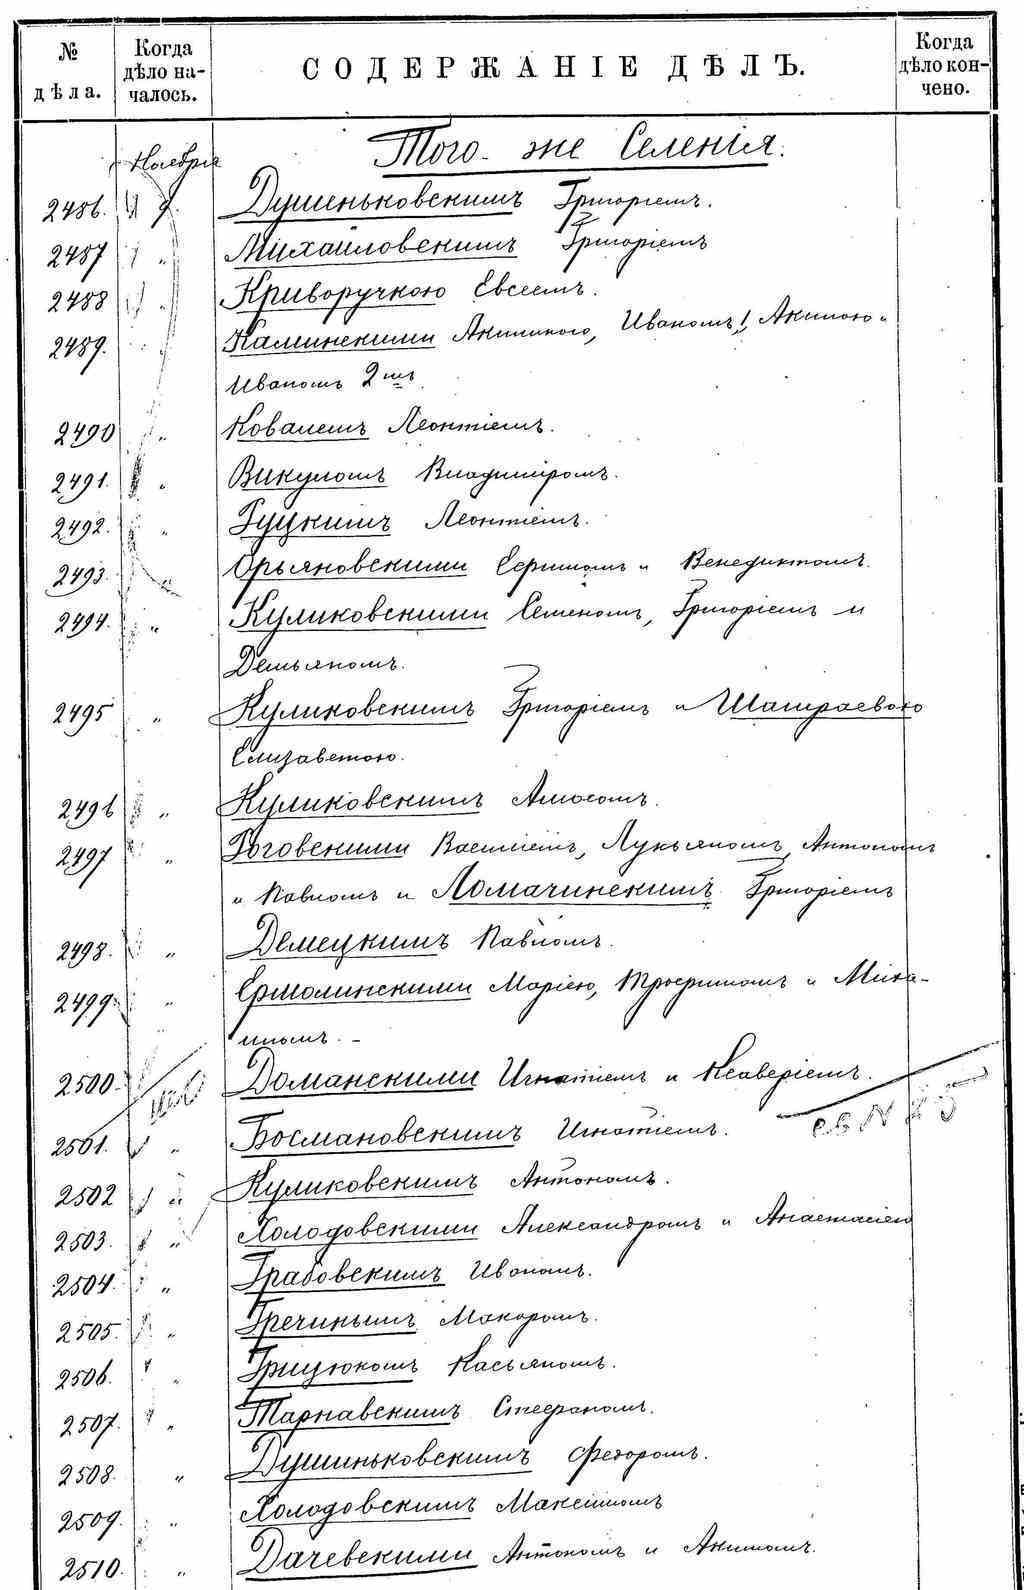 № дѣла. Когда дѣло началось. СОДЕРЖАНІЕ ДѢЛЪ. Когда дѣло кончено.
Ноября Того-же Селенія.
2486. 9. Душеньковскимъ Григоріемъ.
2487 " Михайловскимъ Григоріемъ
2488 " Криворучкою Евсеемъ.
2489. " Каминскими Акилиною, Иваномъ 1, Акимою и
Иваномъ 2мъ
2490 " Ковалемъ Леонтіемъ.
2491. " Викуломъ Владиміромъ.
2492. " Гуцкимъ Леонтіемъ.
2493. " Орьяновскими и Венедиктомъ.
2494. " Куликовскими Семеномъ, Григоріемъ и
Демьяномъ.
2495 " Куликовскимъ Григоріемъ и Шатраевою
Елизаветою.
2496 " Куликовскимъ Амосомъ.
2497 " Роговскими Василіемъ, Лукьяномъ, Антономъ
и Павломъ и Ломачинскимъ Григоріемъ
2498. " Демецкимъ Павломъ.
2499. " Ермолинскими Маріею, Трофимомъ и Миха-
иломъ. -
2500. Доманскими Игнатіемъ и Ксаверіемъ.
2501. " Босмановскимъ Игнатіемъ.
2502 " Куликовскимъ Антономъ.
2503. " Холодовскими Александромъ и Анастасіею
2504. " Грабовскимъ Иваномъ.
2505. " Гречинымъ Макаромъ.
2506. " Грицюкомъ Касьяномъ.
2507. " Тарнавскимъ Стефаномъ.
2508. " Душиньковскимъ Федоромъ.
2509. " Холодовскимъ Максимомъ
2510. " Дачевскими Антономъ и Акимомъ.